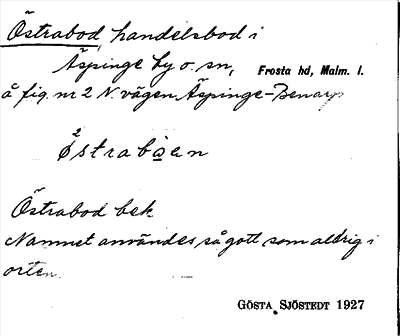 Östrabod, handelsbod i
Äspinge by o. sn, Frosta hd, Malm. l.
å fig. nr 2 N. vägen Äspinge-Benarp
östraboen
Östrabod bek.
Namnet användes så gott som aldrig i
orten.
GÖSTA SJÖSTEDT 1927